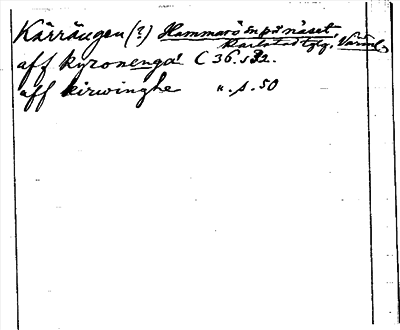 Kärrängen (?) Hammarö sn på näset
Karlstad tglg, Värml.
aff kyronenga! C 36. s 32.
aff kirwinghe ". s. 50